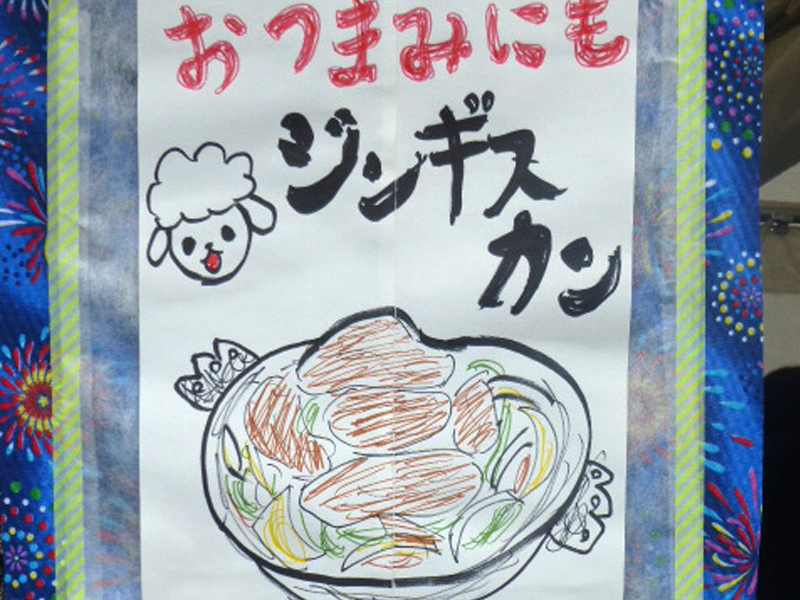 おつまみにも
ジンギス
カン